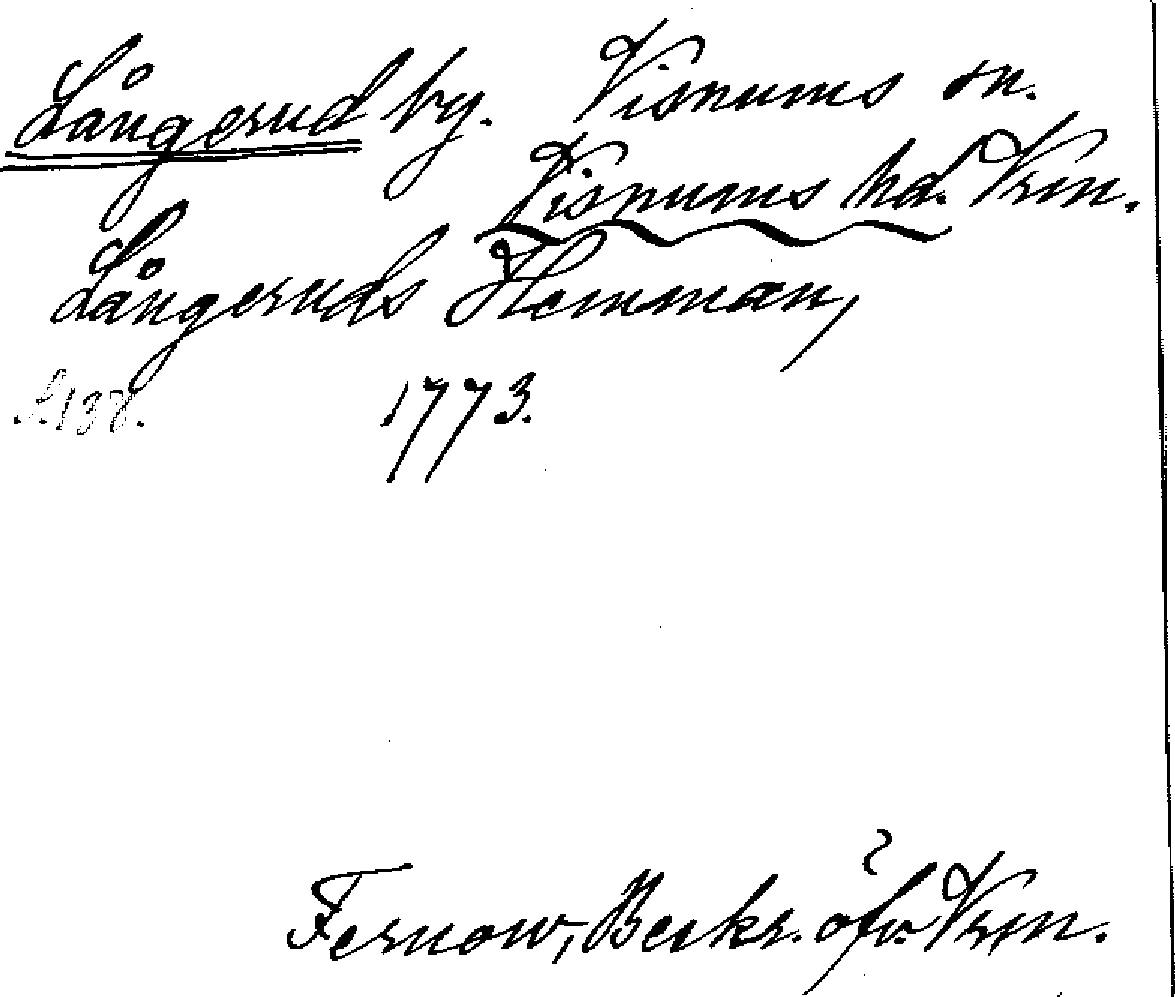 Långerud by. Visnums sn.
Visnums hd. Vrm.
Långeruds Hemman,
S. 198. 1773.
Fernow, Beskr. öfv. Vrm.